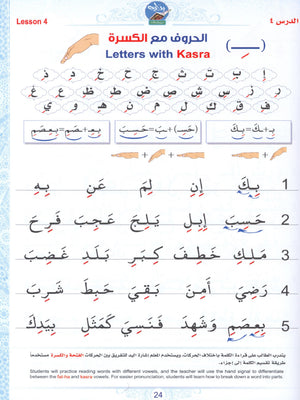 Lesson 4
الدرس ٤
الحروف مع الكسرة
Letters with Kasra
(ـِ)
إِ بِ تِ ثِ جِ حِ خِ دِ ذِ
رِ زِ سِ شِ صِ ضِ طِ ظِ عِ غِ
فِ قِ كِ لِ مِ نِ هِ وِ يِ
بِـ+ـكَ=بِكَ
(حَسِـ)+ـبَ=حَسِبَ
بِعـِ+ـصَمِ=بِعِصَمِ
1 بِكَ إِنِ لِمَ عَنِ بِهِ
2 حَسِبَ إِبِلِ يَلِجَ عَجِبَ فَرِحَ
3 مَلِكِ خَطِفَ كِبَرِ بَلَدِ غَضِبَ
4 رَضِيَ أَمِنَ بَقِيَ حَبِطَ شَرِبَ
5 بِعِصَمِ وَشَهِدَ فَنَسِيَ كَمَثَلِ بِيَدِكَ
يتدرب الطالب على قراءة الكلمة باختلاف الحركات، ويستخدم المعلم إشارة اليد للتفريق بين الحركات الفتحة والكسرة مستخدماً
طريقة تقسيم الكلمة إلى أجزاء.
Students will practice reading words with different vowels, and the teacher will use the hand signal to differentiate
between the fat-ha and kasra vowels. For easier pronunciation, students will learn how to break down a word into parts.
24